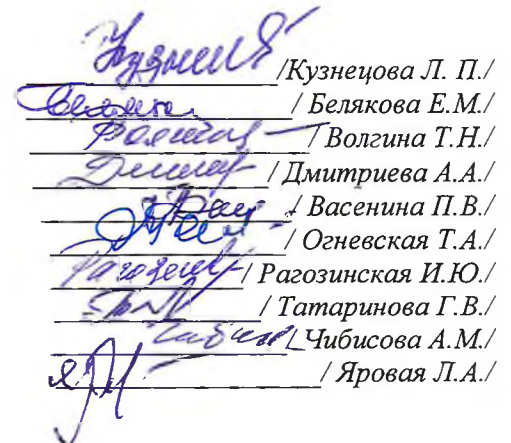 /Кузнецова Л. П./
/ Белякова Е.М./
/ Волгина Т.Н./
/ Дмитриева А.А./
/ Васенина П.В./
/ Огневская Т.А./
/ Рагозинская И.Ю./
/ Татаринова Г.В./
/Чибисова А.М./
/ Яровая Л.А./